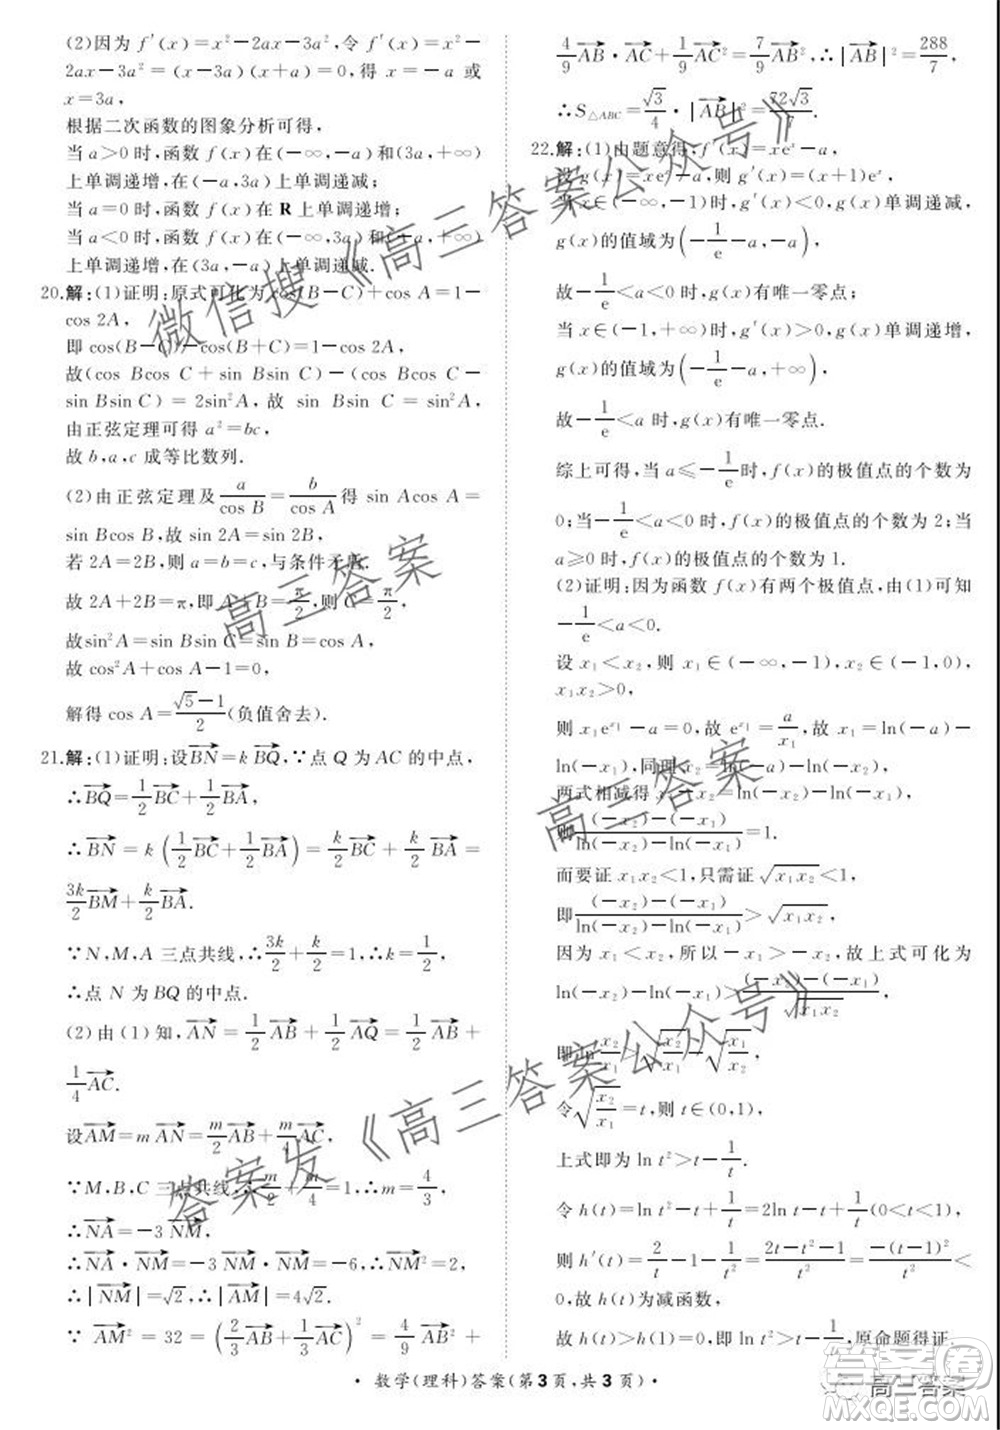 (2)因为 f′(x)=x²−2ax−3a²,令 f′(x)=x²−
2ax−3a²=(x−3a)(x+a)=0,得 x=−a 或
x=3a,
根据二次函数的图象分析可得,
当 a>0 时,函数 f(x)在(−∞,−a)和(3a,+∞)
上单调递增,在(−a,3a)上单调递减;
当 a=0 时,函数 f(x)在 R 上单调递增;
当 a<0 时,函数 f(x)在(−∞,3a)和(−a,+∞)
上单调递增,在(3a,−a)上单调递减.
20.解:(1)证明:原式可化为 cos(B−C)+cos A=1−
cos 2A,
即 cos(B−C)−cos(B+C)=1−cos 2A,
故(cos Bcos C+sin Bsin C)−(cos Bcos C−sin
Bsin C)=2sin²A,故 sin Bsin C=sin²A,
由正弦定理可得 a²=bc,
故 b,a,c 成等比数列.
(2)由正弦定理及 a/cos B=b/cos A 得 sin Acos A=
sin Bcos B,故 sin 2A=sin 2B,
若 2A=2B,则 a=b=c,与条件矛盾.
故 2A+2B=π,即 A+B=π/2,则 C=π/2,
故sin²A=sin Bsin C=sin B=cos A,
故 cos²A+cos A−1=0,
解得 cos A=(√5−1)/2(负值舍去).
21.解:(1)证明:设BN=k BQ,∵点 Q 为 AC 的中点,
∴BQ=1/2 BC+1/2 BA,
∴BN=k(1/2 BC+1/2 BA)=k/2 BC+k/2 BA=
3k/2 BM+k/2 BA.
∵N,M,A 三点共线,∴3k/2+k/2=1,∴k=1/2,
∴点 N 为 BQ 的中点.
(2)由(1)知, AN=1/2 AB+1/2 AQ=1/2 AB+
1/4 AC.
设AM=m AN=m/2 AB+m/4 AC,
∵M,B,C 三点共线,∴m/2+m/4=1,∴m=4/3,
∴NA=−3 NM.
∴NA·NM=−3 NM·NM=−6,∴NM²=2,
∴|NM|=√2,∴|AM|=4√2.
∵ AM²=32=(2/3 AB+1/3 AC)²=4/9 AB²+
4/9 AB·AC+1/9 AC²=7/9 AB²,∴|AB|²=288/7,
∴S△ABC=√3/4·|AB|²=72√3/7.
22.解:(1)由题意得,f′(x)=xeˣ−a,
设 g(x)=xeˣ−a,则 g′(x)=(x+1)eˣ,
当 x∈(−∞,−1)时,g′(x)<0,g(x)单调递减,
g(x)的值域为(−1/e−a,−a),
故−1/e<a<0 时,g(x)有唯一零点;
当 x∈(−1,+∞)时,g′(x)>0,g(x)单调递增,
g(x)的值域为(−1/e−a,+∞),
故−1/e<a 时,g(x)有唯一零点.
综上可得,当 a≤−1/e时,f(x)的极值点的个数为
0;当−1/e<a<0 时,f(x)的极值点的个数为 2;当
a≥0时,f(x)的极值点的个数为 1.
(2)证明:因为函数 f(x)有两个极值点,由(1)可知
−1/e<a<0.
设 x₁<x₂,则 x₁∈(−∞,−1),x₂∈(−1,0),
x₁x₂>0,
则 x₁e^x₁−a=0,故 e^x₁=a/x₁,故 x₁=ln(−a)−
ln(−x₁),同理 x₂=ln(−a)−ln(−x₂),
两式相减得 x₁−x₂=ln(−x₂)−ln(−x₁),
即 ((−x₂)−(−x₁))/(ln(−x₂)−ln(−x₁))=1.
而要证 x₁x₂<1,只需证√(x₁x₂)<1,
即 ((−x₂)−(−x₁))/(ln(−x₂)−ln(−x₁))>√(x₁x₂),
因为 x₁<x₂,所以−x₁>−x₂,故上式可化为
ln(−x₂)−ln(−x₁)>((−x₂)−(−x₁))/√(x₁x₂),
即ln x₂/x₁>√(x₂/x₁)−√(x₁/x₂),
令√(x₂/x₁)=t,则 t∈(0,1),
上式即为 ln t²>t−1/t.
令 h(t)=ln t²−t+1/t=2ln t−t+1/t(0<t<1),
则 h′(t)=2/t−1−1/t²=(2t−t²−1)/t²=−(t−1)²/t²<
0,故 h(t)为减函数,
故 h(t)>h(1)=0,即 ln t²>t−1/t,原命题得证.
·数学(理科)答案(第3页,共3页)·
微信搜《高三答案公众号》
高三答案
高三答案
答案发《高三答案公众号》
高三答案
答案圈
MXQE.COM